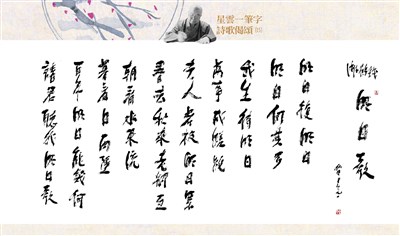 星雲一筆字
詩歌偈頌
明日歌
明日復明日
明日何其多
我生待明日
萬事成蹉跎
世人若被明日累
春去秋來老將至
朝看水東流
暮看日西墜
百年明日能幾何
請君聽我明日歌